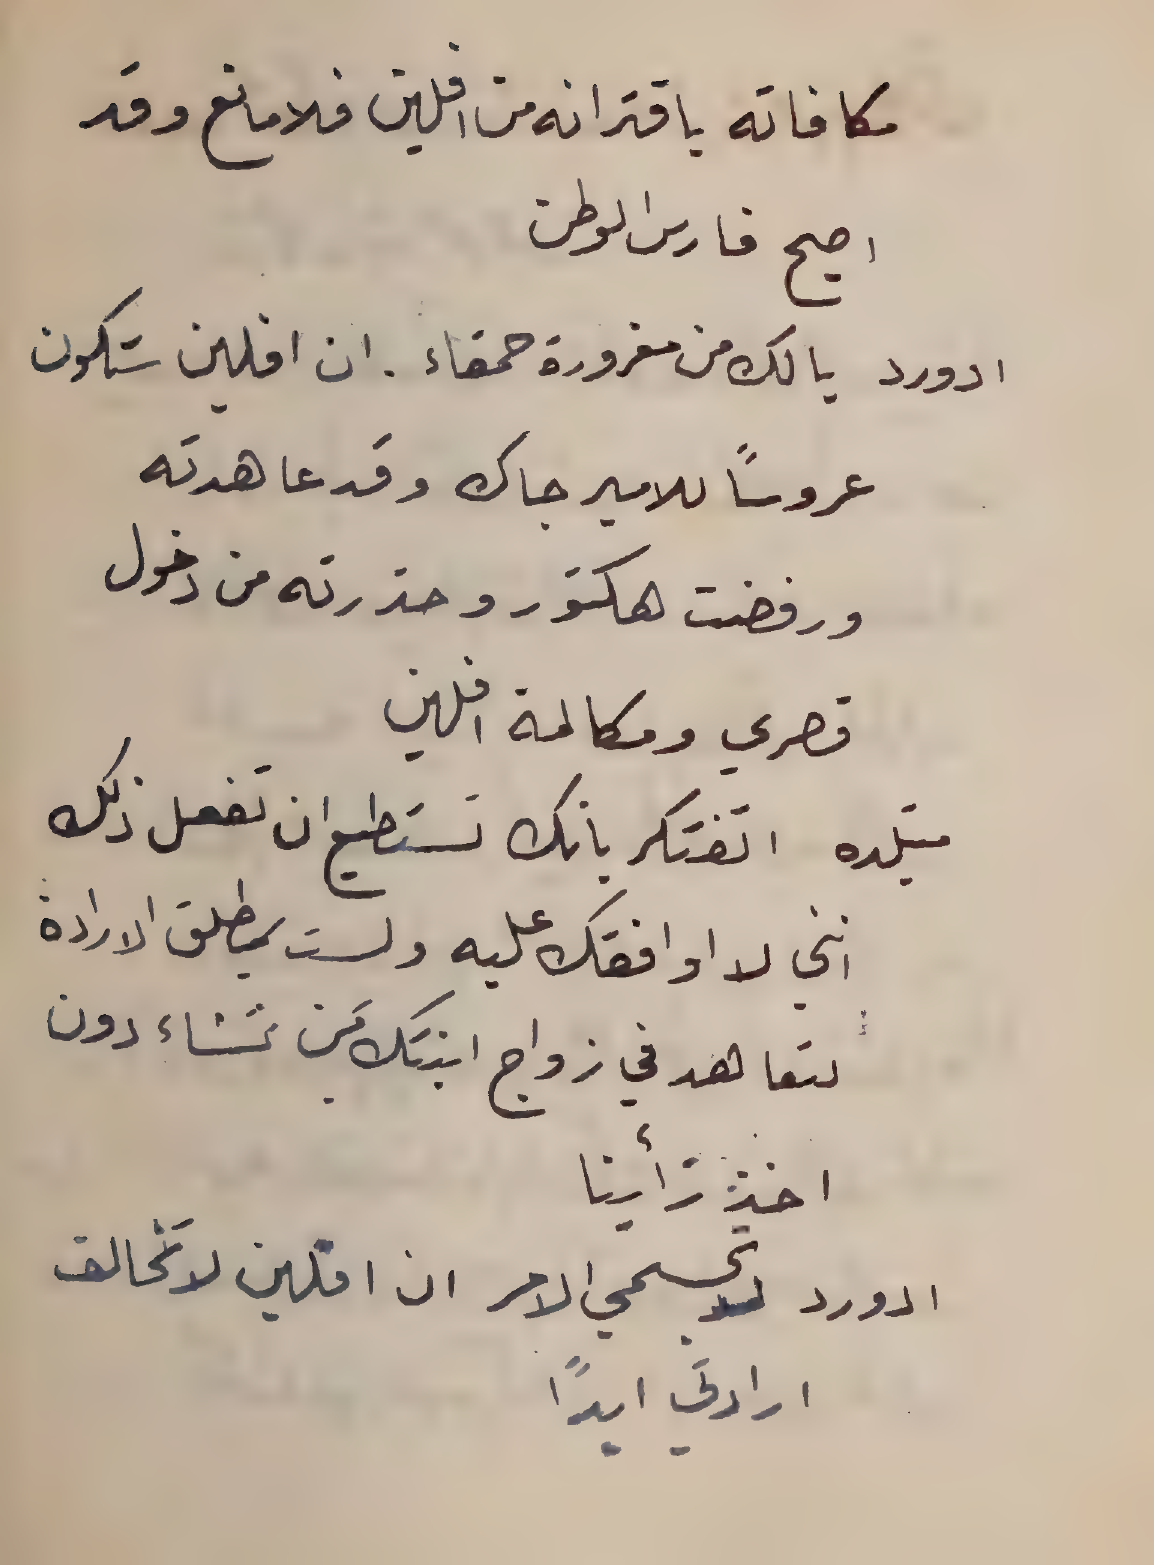 مكافاته باقترانه من افلين فلا مانع وقد
اصبح فارس الوطن
ادورد يالك من مغرورة حمقاء . ان افلين ستكون
عروسًا للامير جاك وقد عاهدته
ورفضت هكتور وحذرته من دخول
قصري ومكالمة افلين
متيلده اتفتكر بانك تستطيع ان تفعل ذلك
انني لا اوافقك عليه ولست بمطلق الارادة
لتعاهد في زواج ابنتك بمن تشاء دون
اخذ رأينا
ادورد الامر ان افلين لا تخالف
ارادتي ابدًا